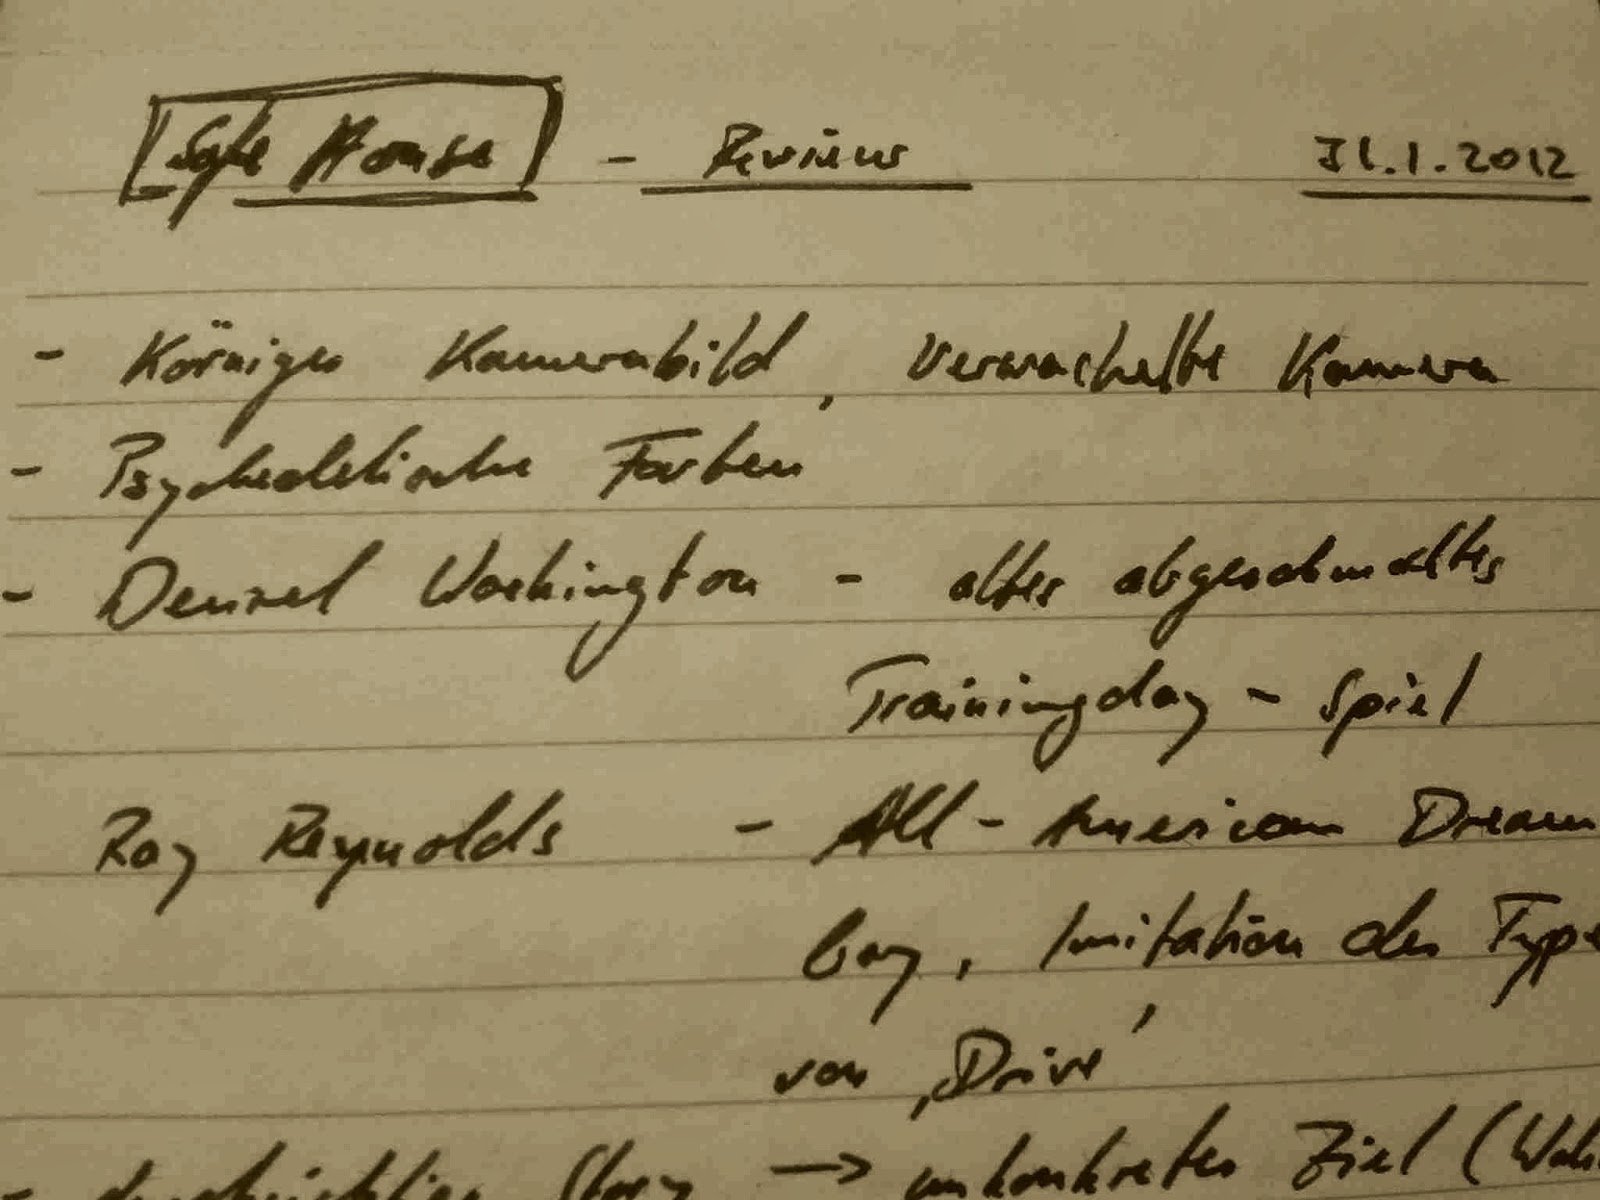 Safe House - Review 31.1.2012
- Körniges Kamerabild, verwackelte Kamera
- Psychedelische Farben
- Denzel Washington - altes abgeschmaltes
Trainingday - Spiel
Ray Reynolds - All-American Dream
boy, Imitation des Type
von 'Drive'
- Story → unkonkretes Ziel (